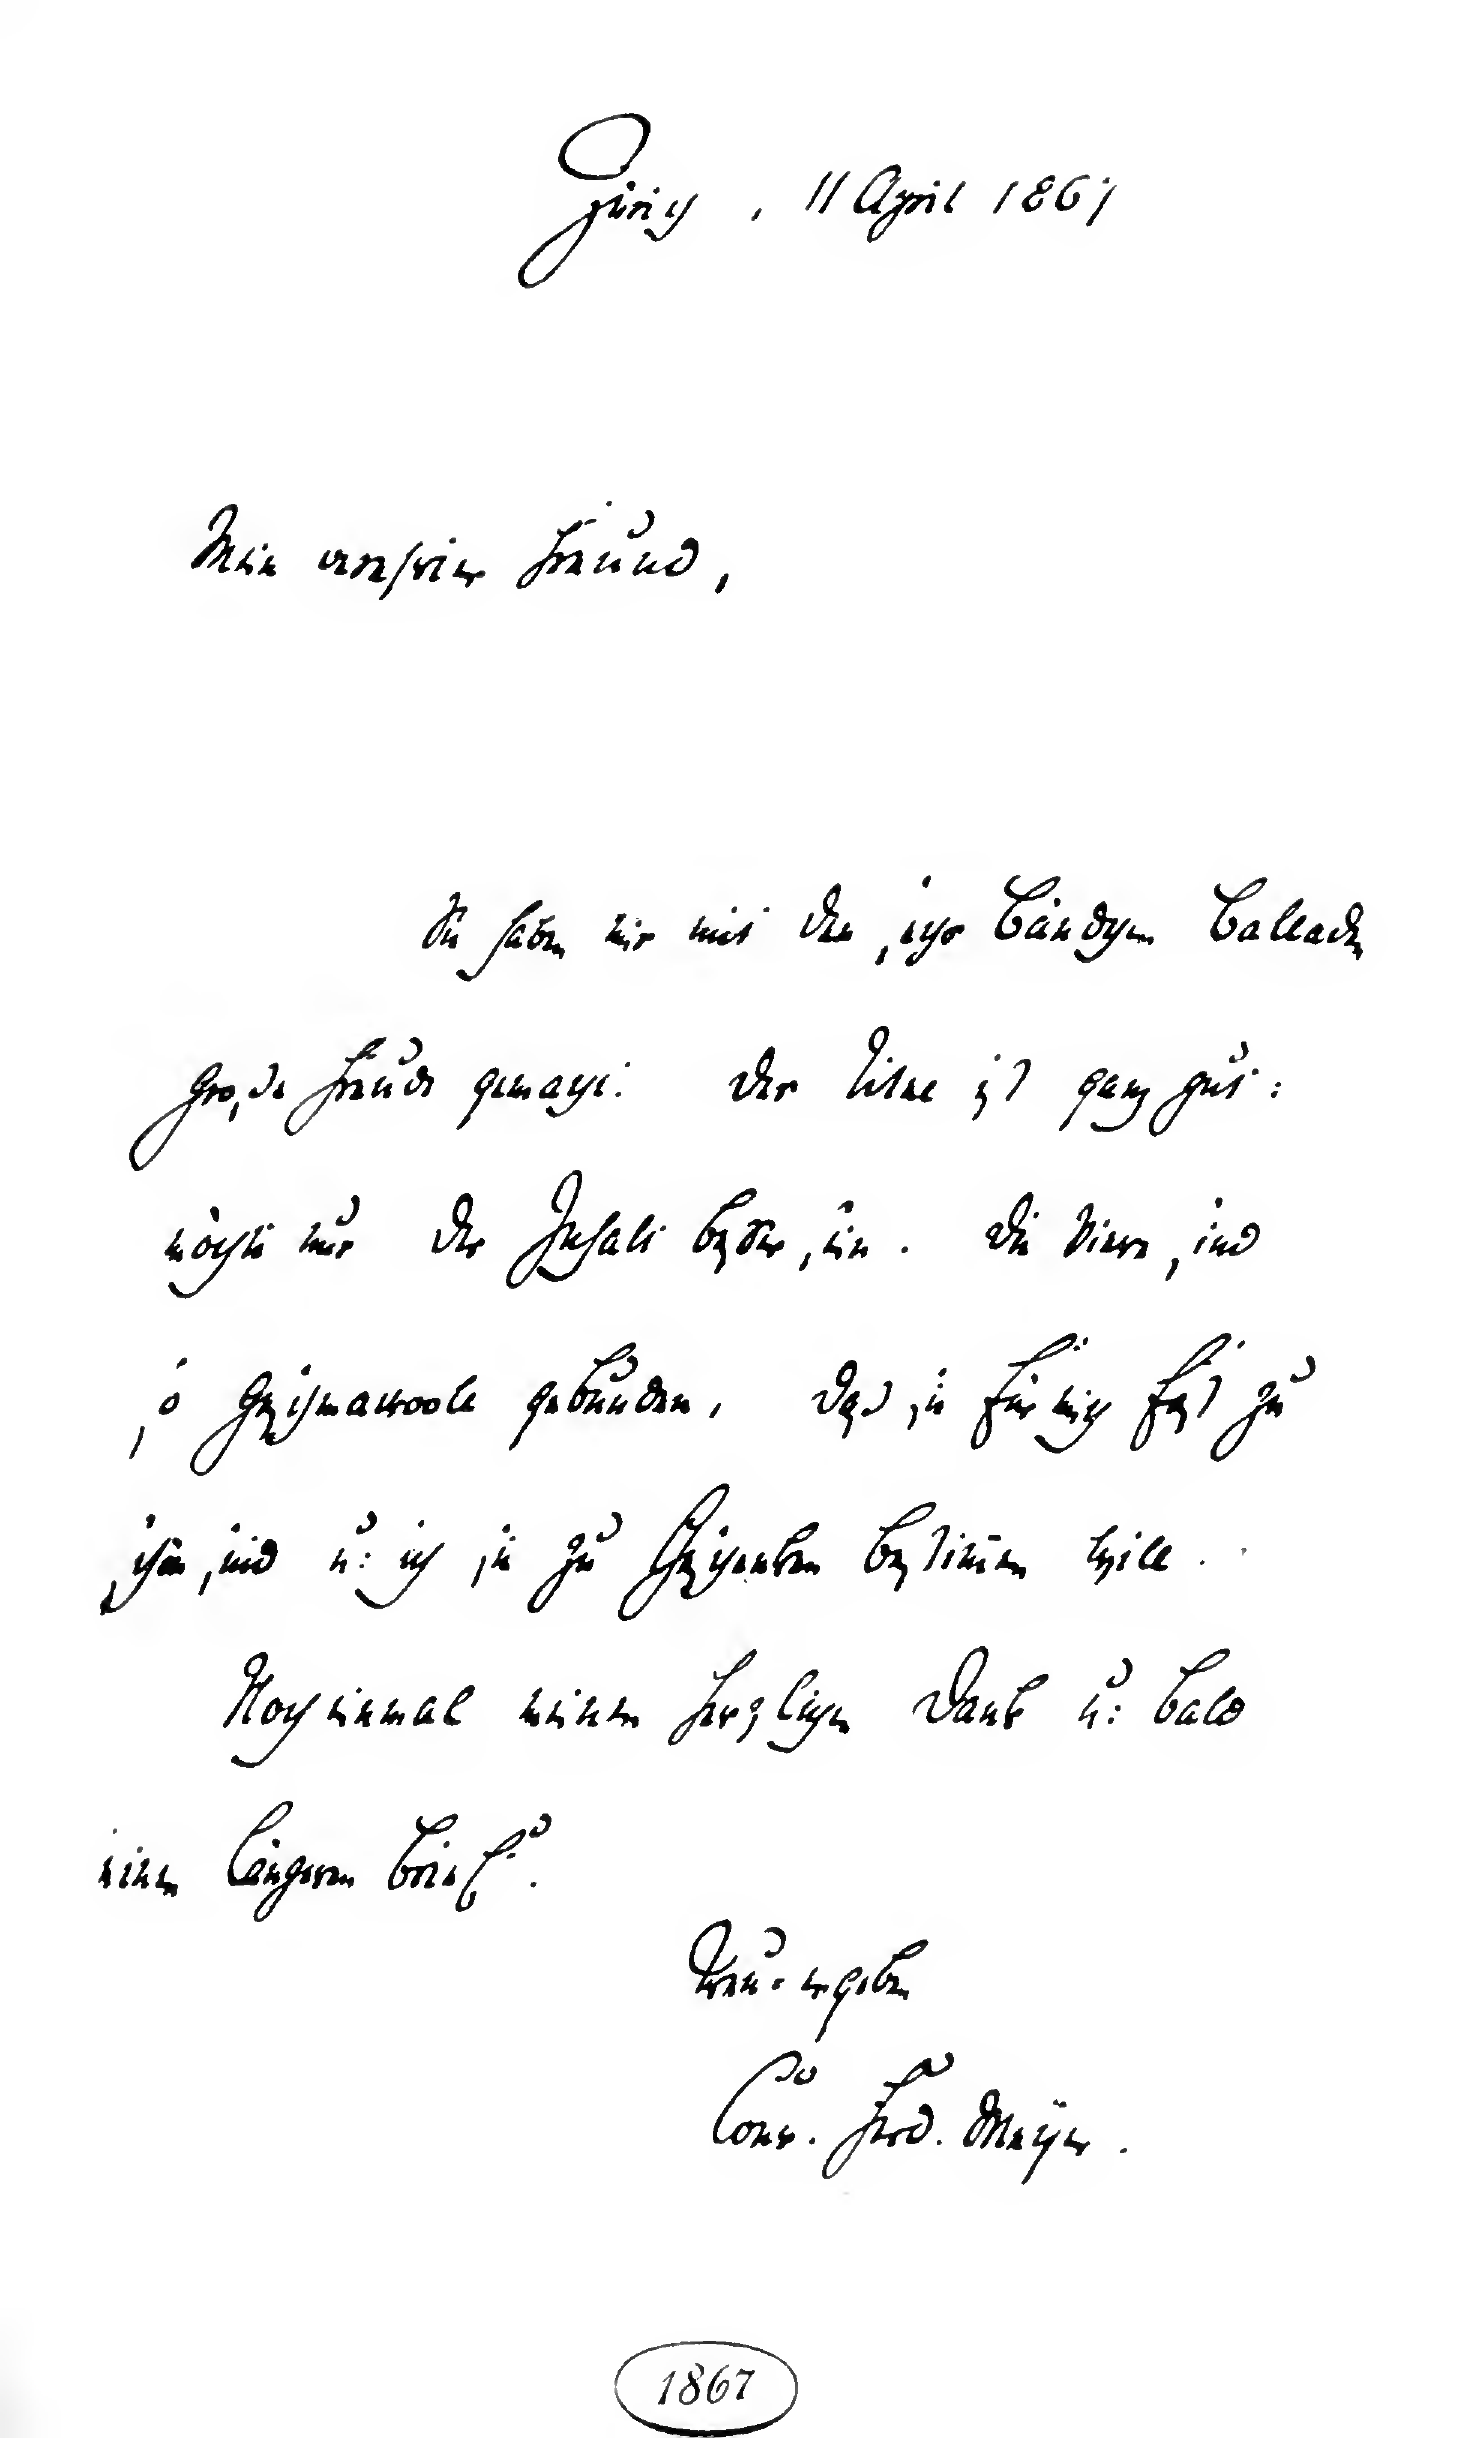 Zürich, 11 April 1867
Mein verehrter Freund,
Sie haben mir mit den sechs Bändchen Balladen
große Freude gemacht. Der Titel ist ganz gut:
möchte nur der Inhalt besser sein. Die Dinger sind
so geschmackvoll gebunden, daß sie für mich fast zu
schön sind u: ich sie zu Geschenken bestimen will.
Noch einmal meinen herzlichen Dank u: bald
einen längeren Brief.
Treu-ergeben
Conr. Ferd. Meyer.
1867